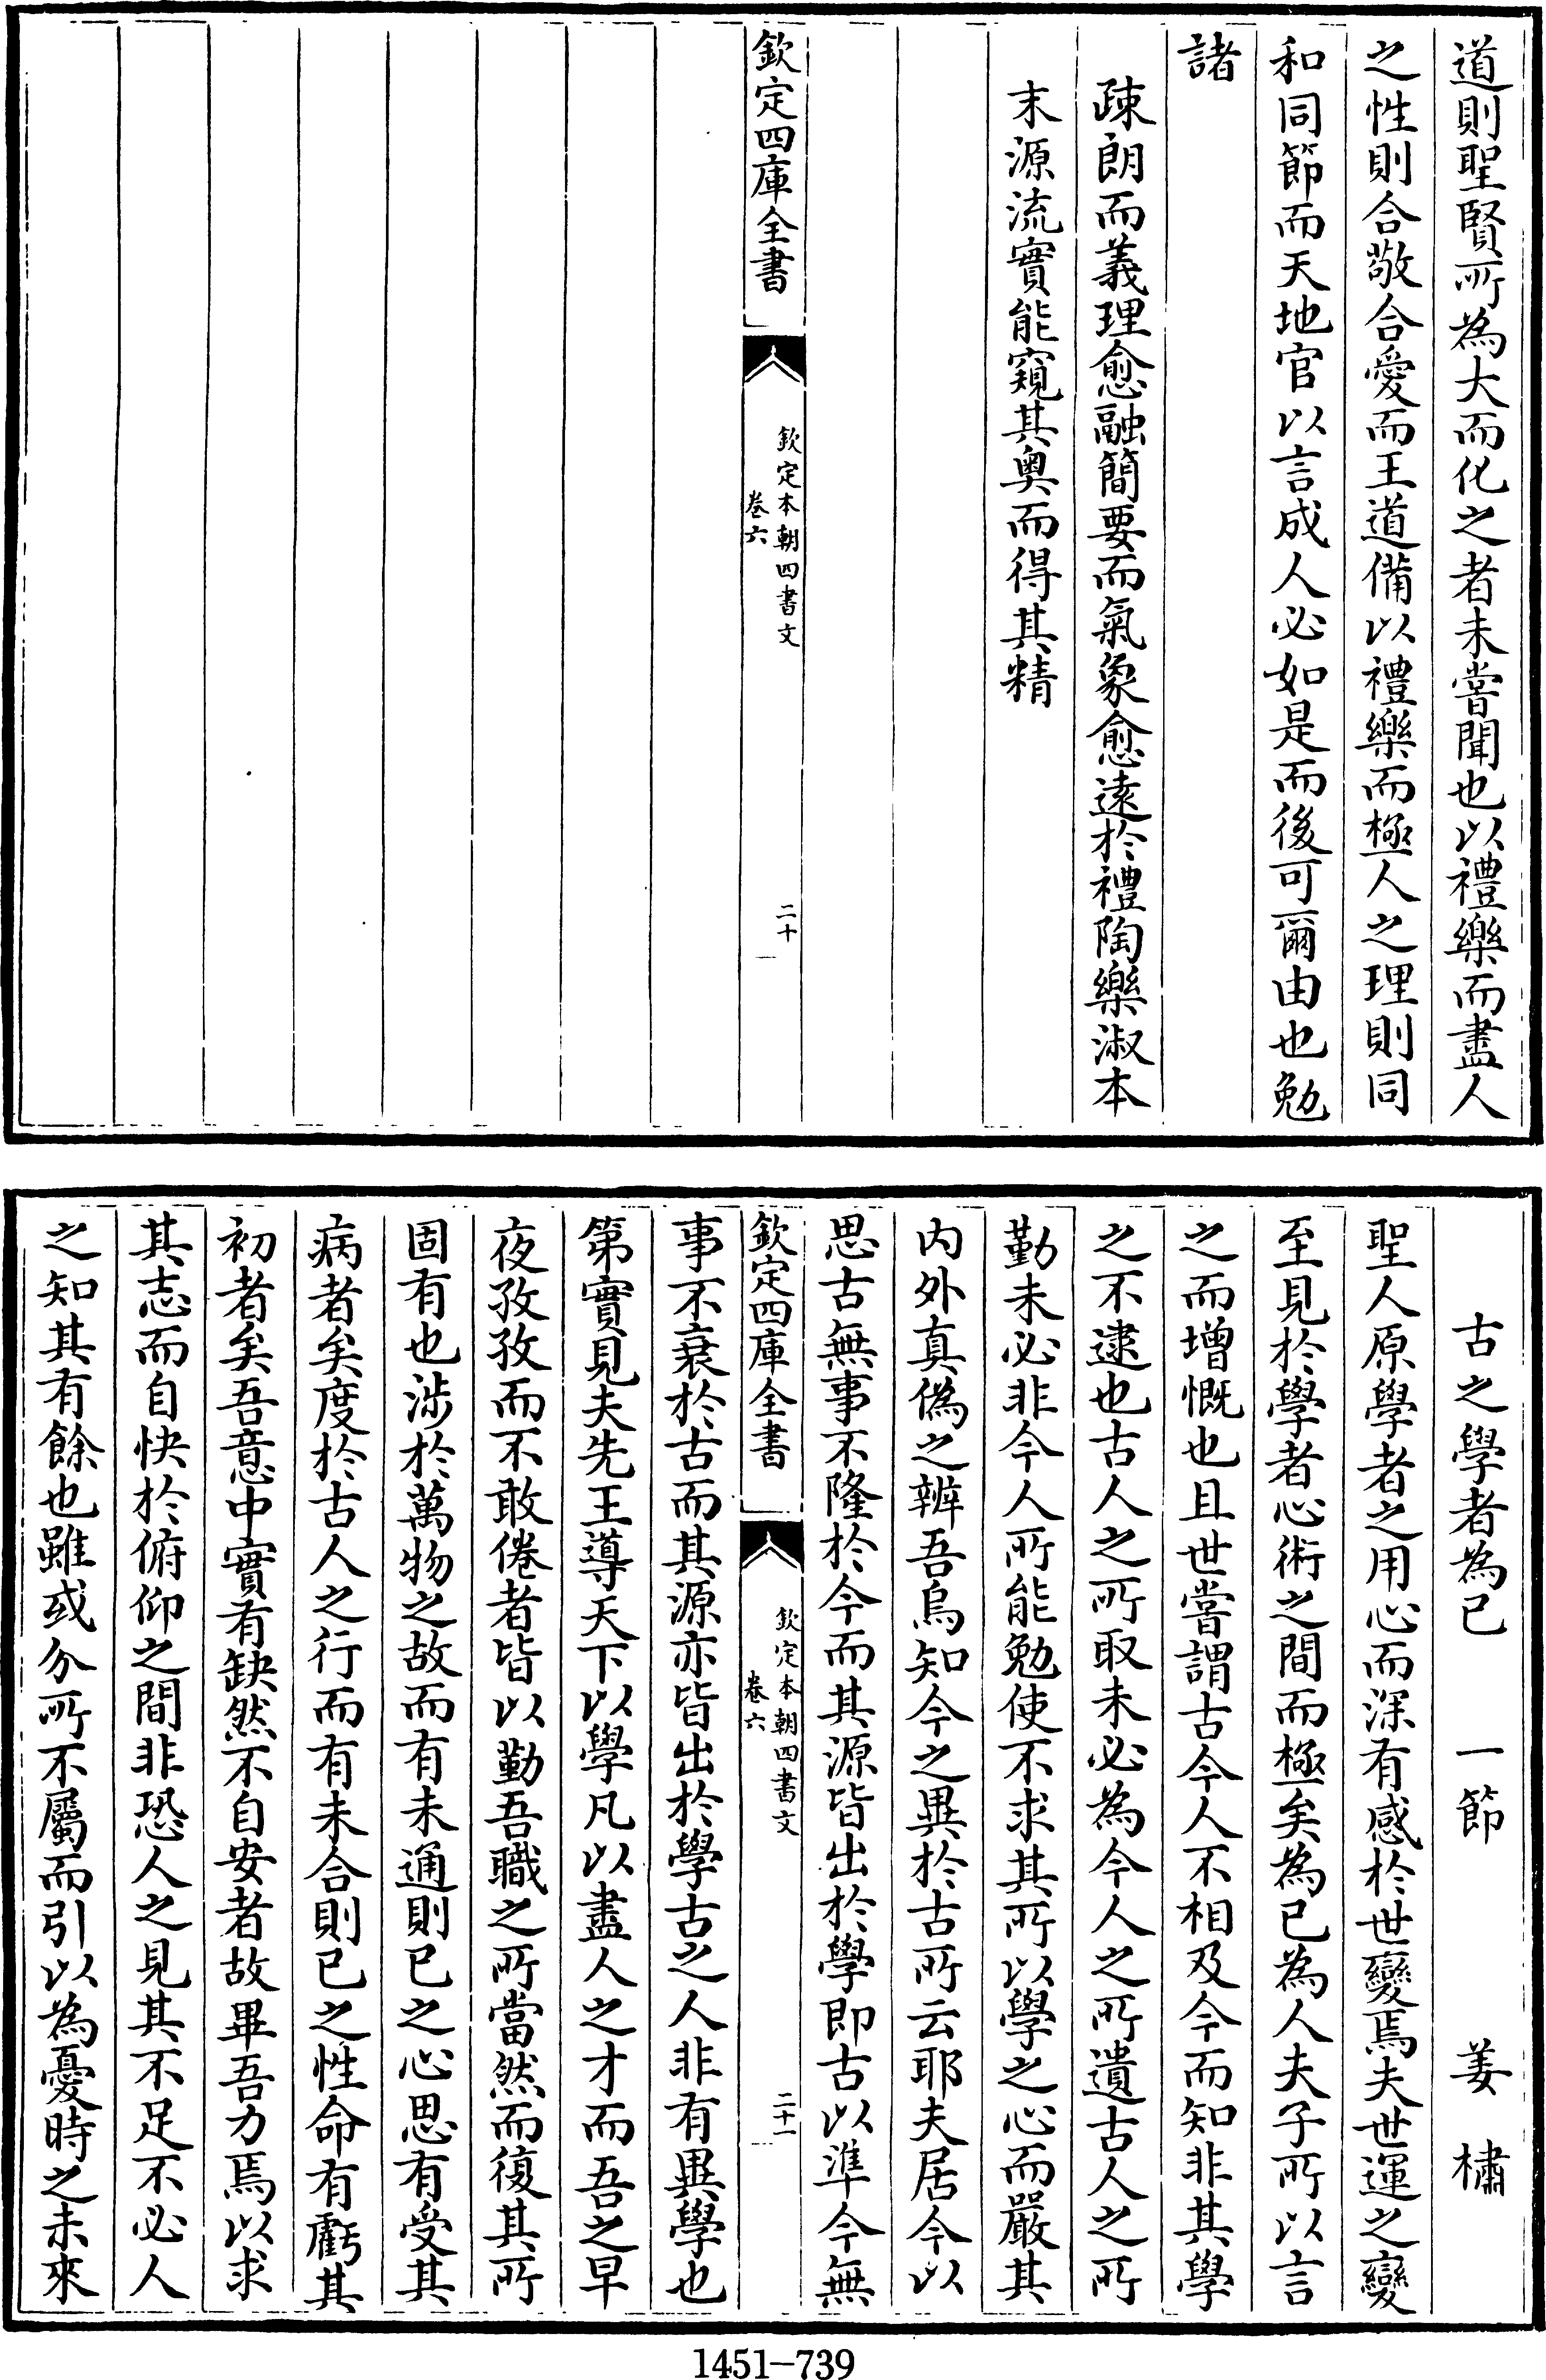 道則聖賢所為大而化之者未嘗聞也以禮樂而盡人
之性則合敬合愛而王道備以禮樂而極人之理則同
和同節而天地官以言成人必如是而後可爾由也勉
諸
疎朗而義理愈融簡要而氣象愈遠於禮陶樂淑本
末源流實能窺其奥而得其精
欽定四庫全書
欽定本朝四書文
卷六
二十
古之學者為已 一節 姜橚
聖人原學者之用心而深有感於世變焉夫世運之變
至見於學者心術之間而極矣為已為人夫子所以言
之而增慨也且世嘗謂古今人不相及今而知非其學
之不逮也古人之所取未必為今人之所遺古人之所
勤未必非今人所能勉使不求其所以學之心而嚴其
内外真偽之辨吾烏知今之異於古所云耶夫居今以
思古無事不隆於今而其源皆出於學即古以準今無
欽定四庫全書
欽定本朝四書文
卷六
二十一
事不衰於古而其源亦皆出於學古之人非有異學也
第實見夫先王導天下以學凡以盡人之才而吾之早
夜孜孜而不敢倦者皆以勤吾職之所當然而復其所
固有也涉於萬物之故而有未通則已之心思有受其
病者矣度於古人之行而有未合則已之性命有虧其
初者矣吾意中實有缺然不自安者故畢吾力焉以求
其志而自快於俯仰之間非恐人之見其不足不必人
之知其有餘也雖或分所不屬而引以為憂時之未來
1451-739